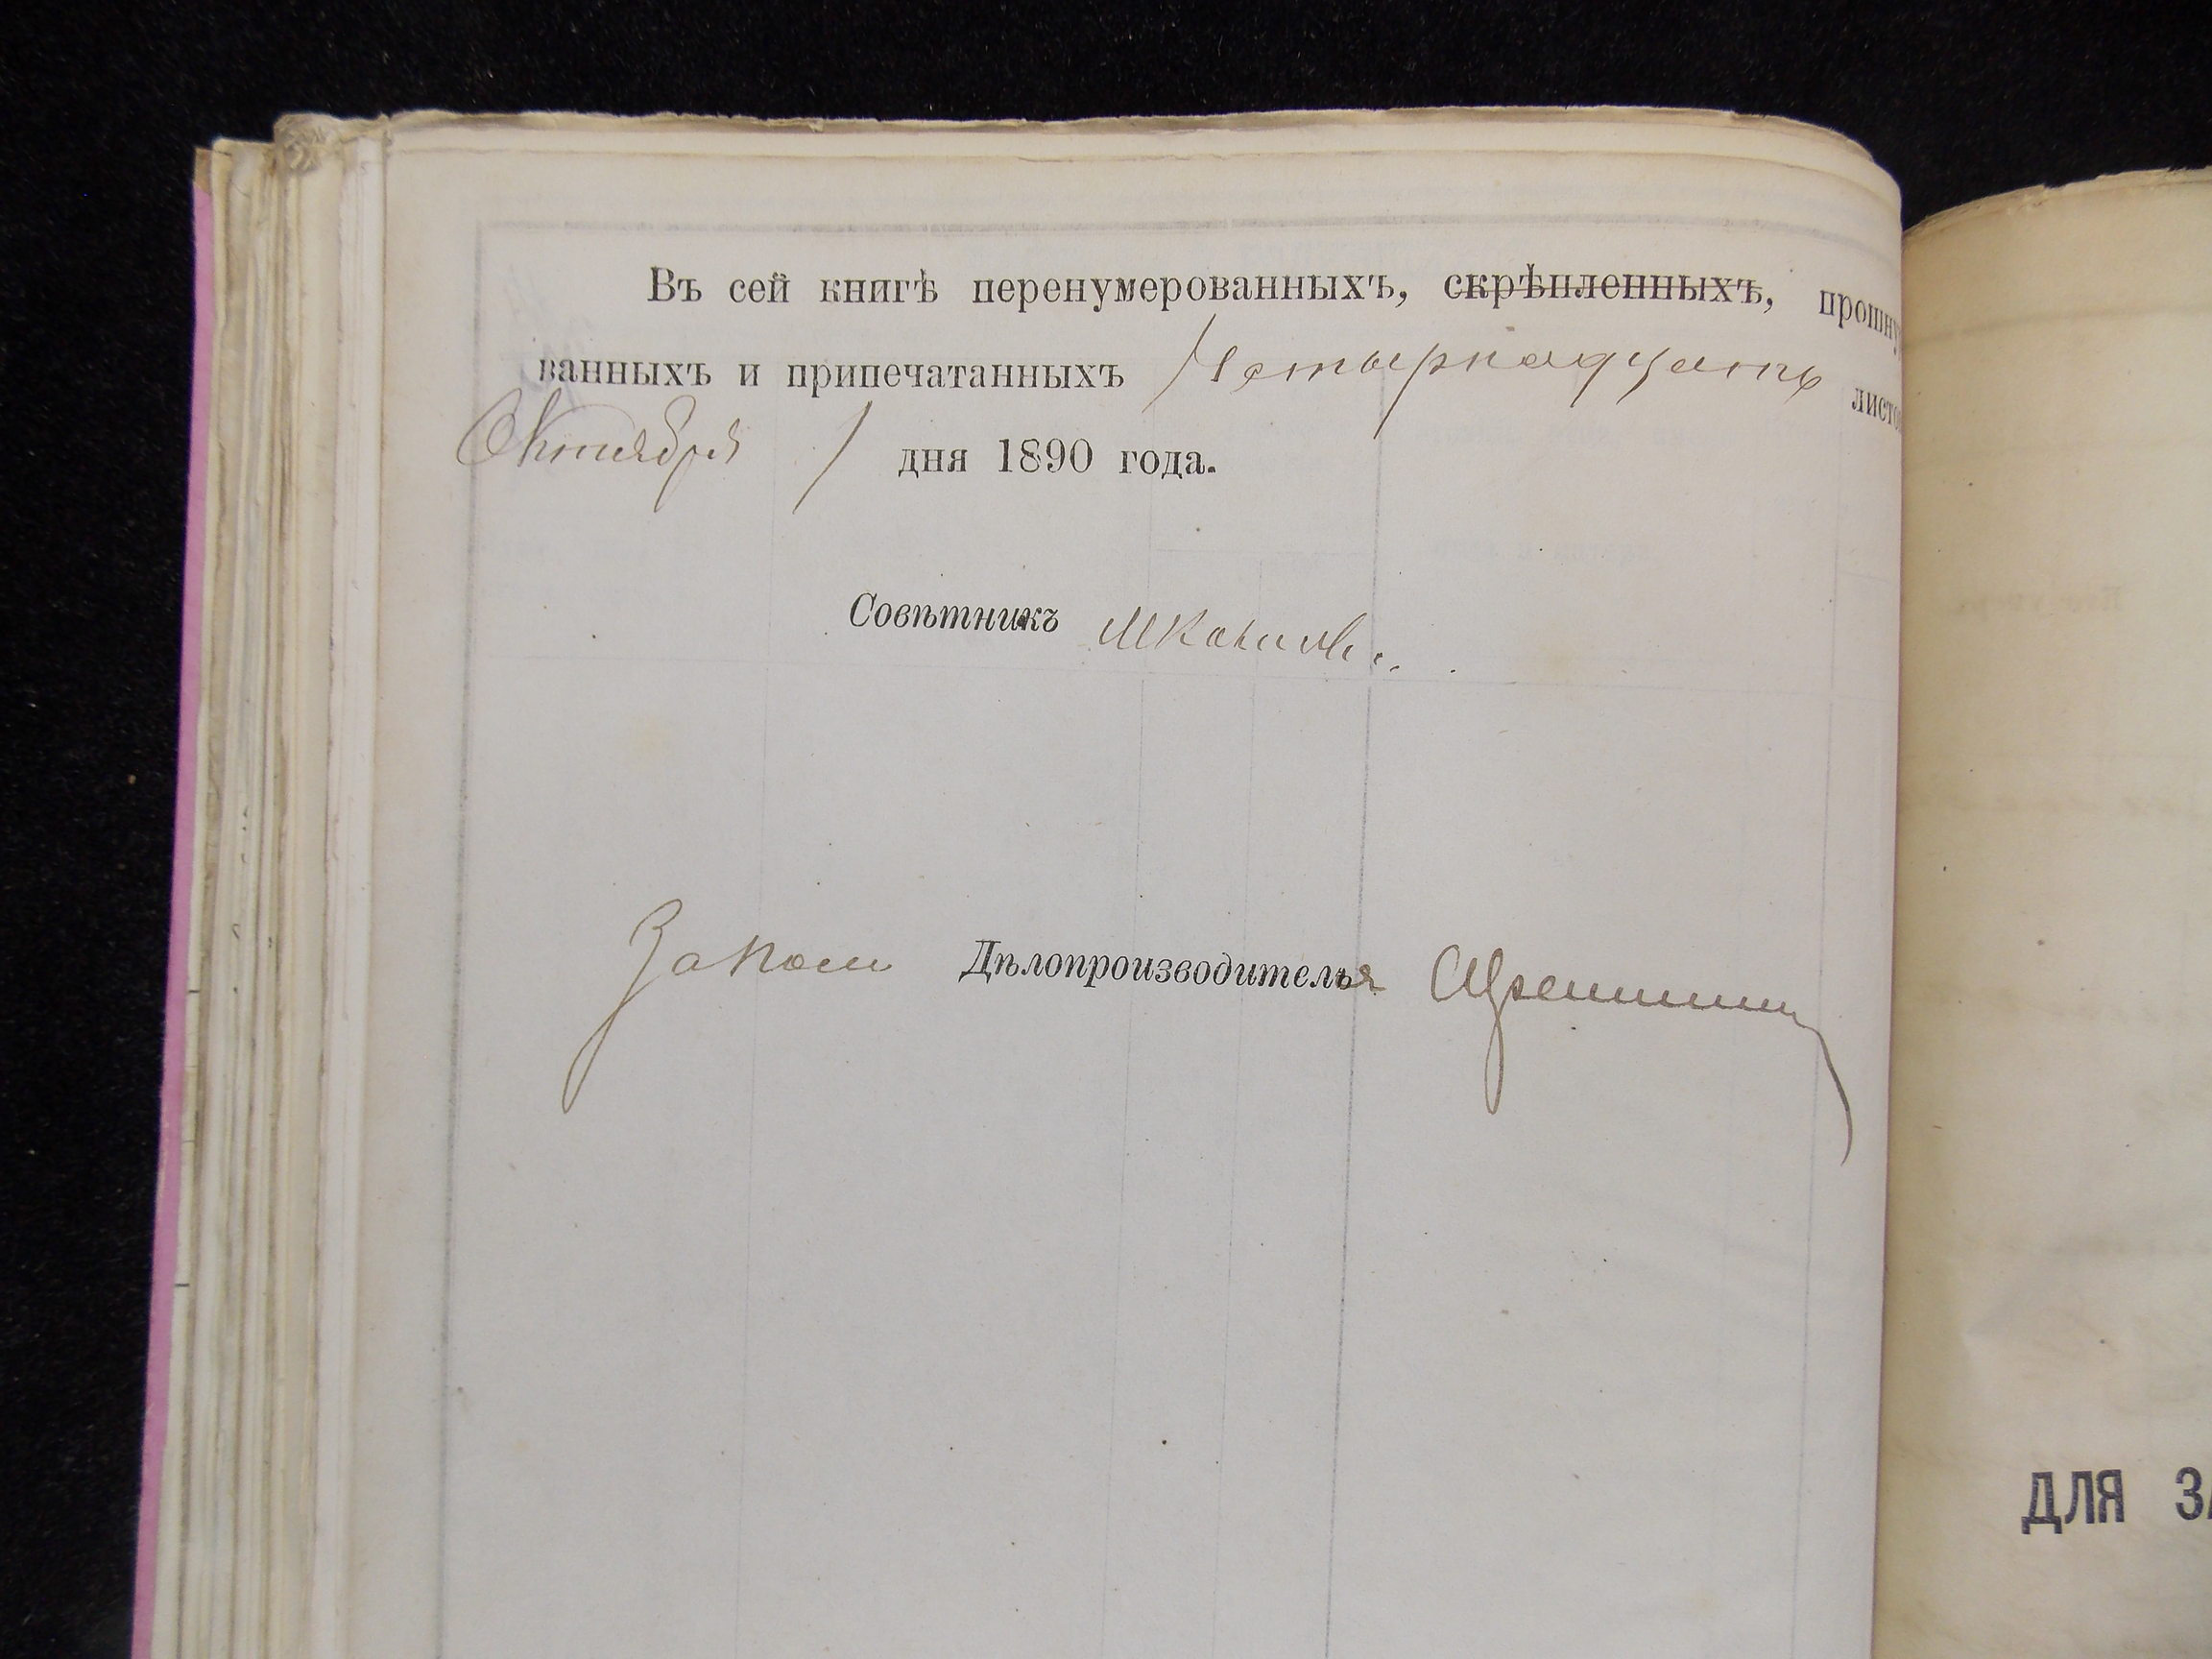 Въ сей книгѣ перенумерованныхъ, скрѣпленныхъ, прошну
ванныхъ и припечатанныхъ Четырнадцать листо
Октября 1 дня 1890 года.
Совѣтникъ
За Дѣлопроизводителя
ДЛЯ ЗА